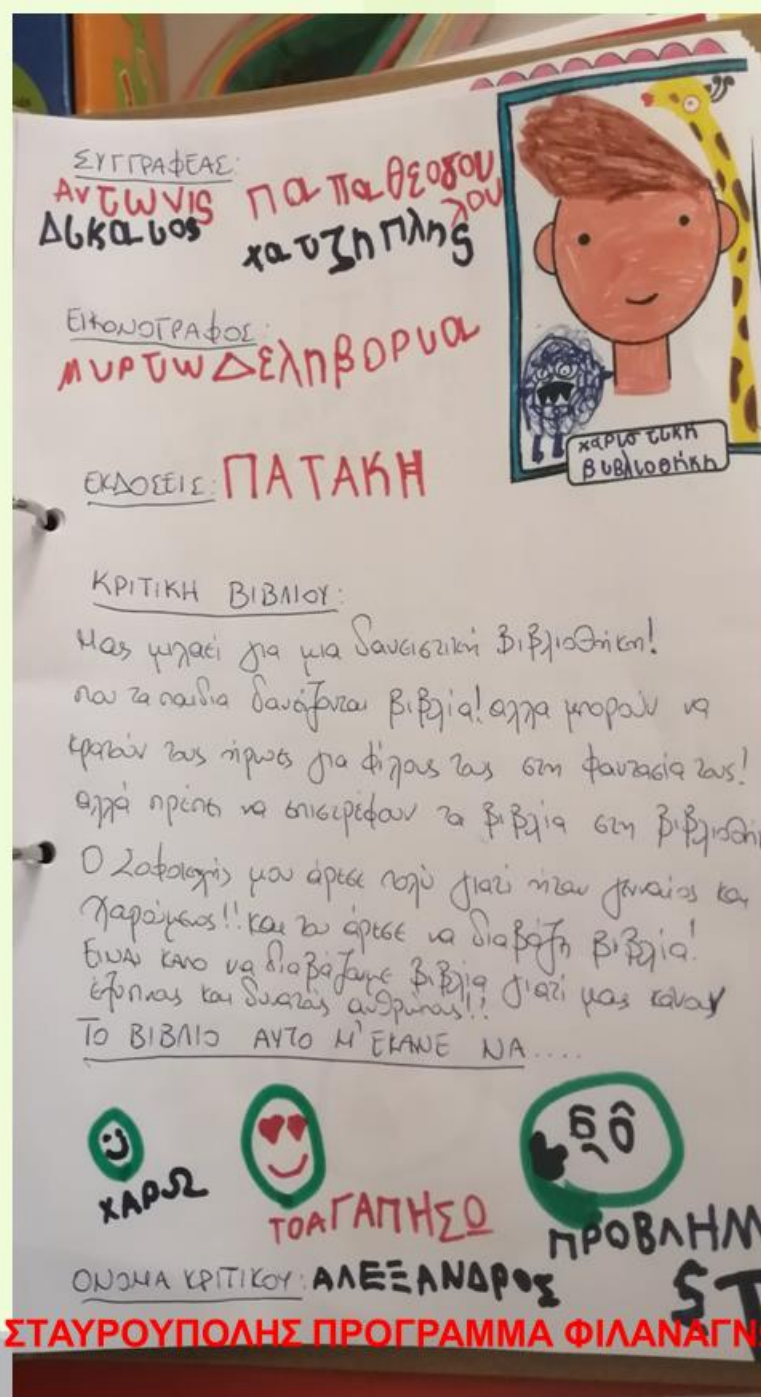 ΣΥΓΓΡΑΦΕΑΣ:
ΑντωνιςΠαπαθεοδουλου
Δικαιος χατζηπλης
χαριστικη
βιβλιοθήκη
ΕΙΚΟΝΟΓΡΑΦΟΣ:
ΜυρτωΔεληβορυα
ΕΚΔΟΣΕΙΣ: ΠΑΤΑΚΗ
ΚΡΙΤΙΚΗ ΒΙΒΛΙΟΥ:
Μας μιλάει για μια δανειστική βιβλιοθήκη!
που τα παιδια δανείζονται βιβλία! αλλα μπορούν να
κρατάν τους ήρωες για φίλους τους στη φαντασία τους!
αλλά πρέπει να επιστρέφουν τα βιβλία στη
Ο μου άρεσε πολύ γιατί ήταν γενναίος και
Χαρούμενος!! Και του άρεσε να διαβάζη βιβλία!
ΕΙΝΑΙ ΚΑΛΟ να διαβάζουμε βιβλία γιατί μας κάνουν
έξυπνους και δυνατούς ανθρώπους!!
ΤΟ ΒΙΒΛΙΟ ΑΥΤΟ Μ' ΕΚΑΝΕ ΝΑ....
ΧΑΡΩ
ΤΟΑΓΑΠΗΣΩ
ΠΡΟΒΛΗΜ
ΟΝΟΜΑ ΚΡΙΤΙΚΟΥ: ΑΛΕΞΑΝΔΡΟΣ
ΣΤΑΥΡΟΥΠΟΛΗΣ ΠΡΟΓΡΑΜΜΑ ΦΙΛΑΝΑΓΝ